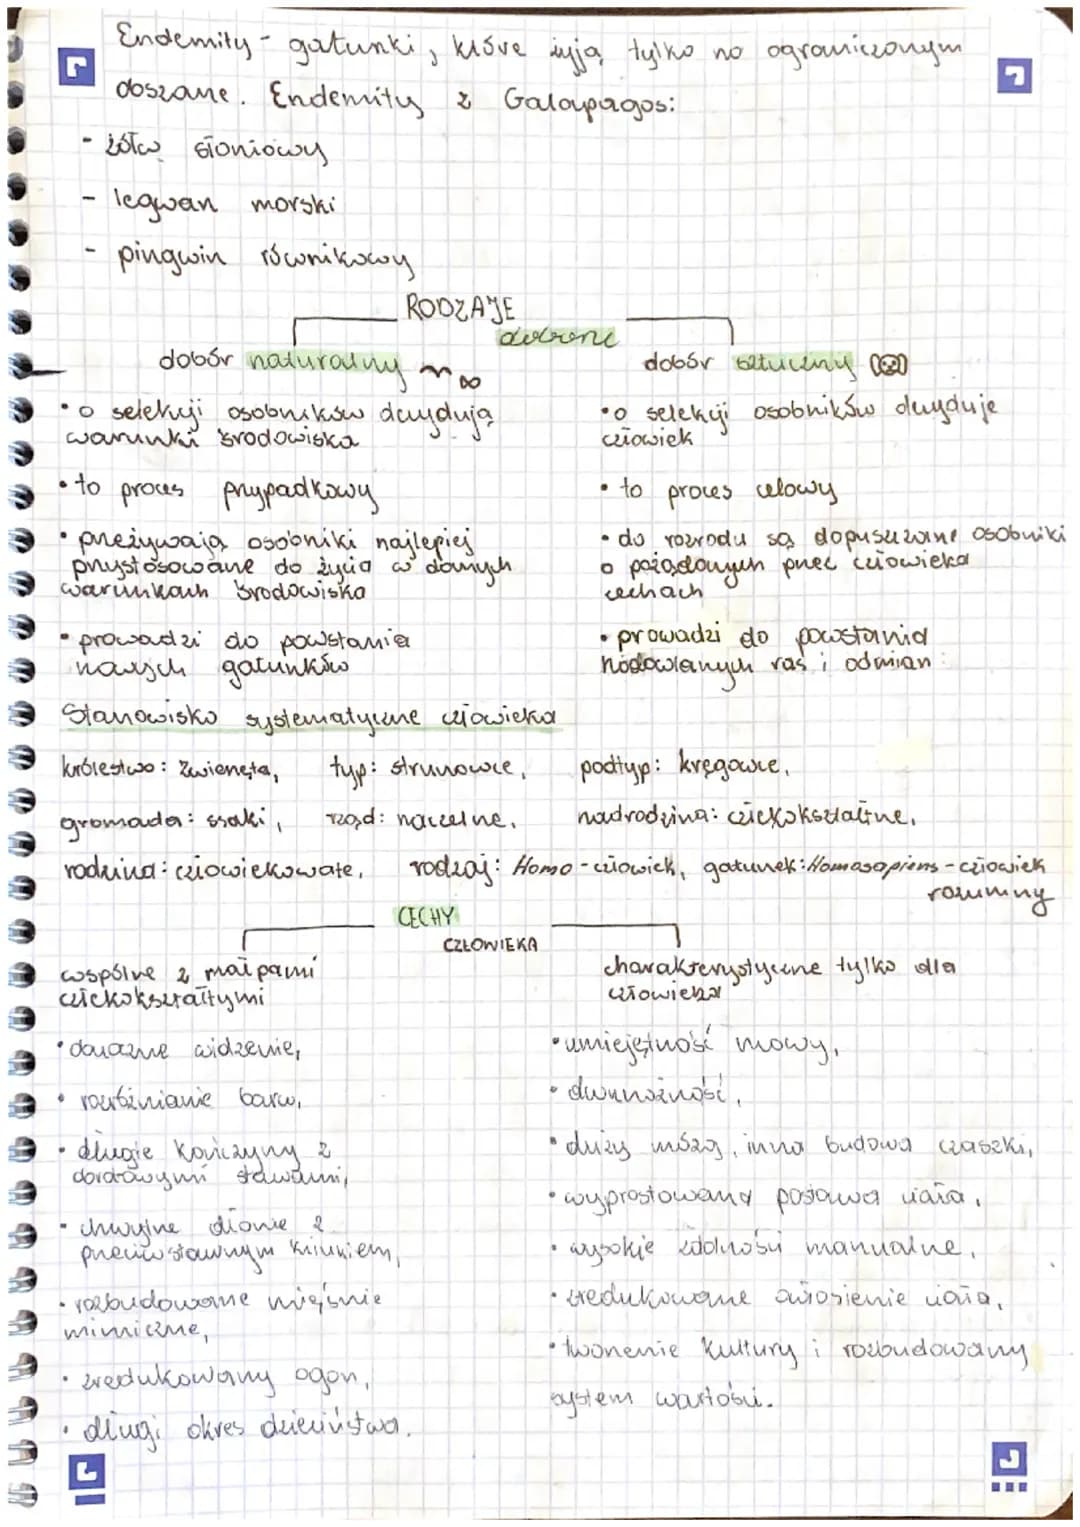 Endemity - gatunki, które żyją tylko no ograniczonym
obszarze. Endemity z Galapagos:
- żółw słoniowy
- legwan morski
- pingwin równikowy
RODZAJE
doboru
dobór naturalny
dobór sztuczny
• o selekcji osobników decydują
warunki środowiska
• o selekcji osobników decyduje
człowiek
• to proces przypadkowy
• to proces celowy
• przeżywają osobniki najlepiej
przystosowane do życia w danych
warunkach środowiska
• do rozrodu są dopuszczane osobniki
o pożądanych przez człowieka
cechach
• prowadzi do powstania
nowych gatunków
• prowadzi do powstania
hodowlanych ras i odmian
Stanowisko systematyczne człowieka
królestwo: Zwierzęta, typ: strunowce, podtyp: kręgowce,
gromada: ssaki, rząd: naczelne, nadrodzina: człekokształtne,
rodzina: człowiekowate, rodzaj: Homo - człowiek, gatunek: Homo sapiens - człowiek
rozumny
CECHY
CZŁOWIEKA
wspólne z małpami
człekokształtymi
charakterystyczne tylko dla
człowieka
• dwuoczne widzenie,
• rozróżnianie barw,
• długie kończyny z
stawami,
• chwytne dłonie z
przeciwstawnym kciukiem,
• rozbudowane mięśnie
mimiczne,
• zredukowany ogon,
• długi okres dzieciństwa.
• umiejętność mowy,
• dwunożność,
• duży mózg, inna budowa czaszki,
• wyprostowana postawa ciała,
• wysokie zdolności manualne,
• zredukowane owłosienie ciała,
• tworzenie kultury i rozbudowany
system wartości.